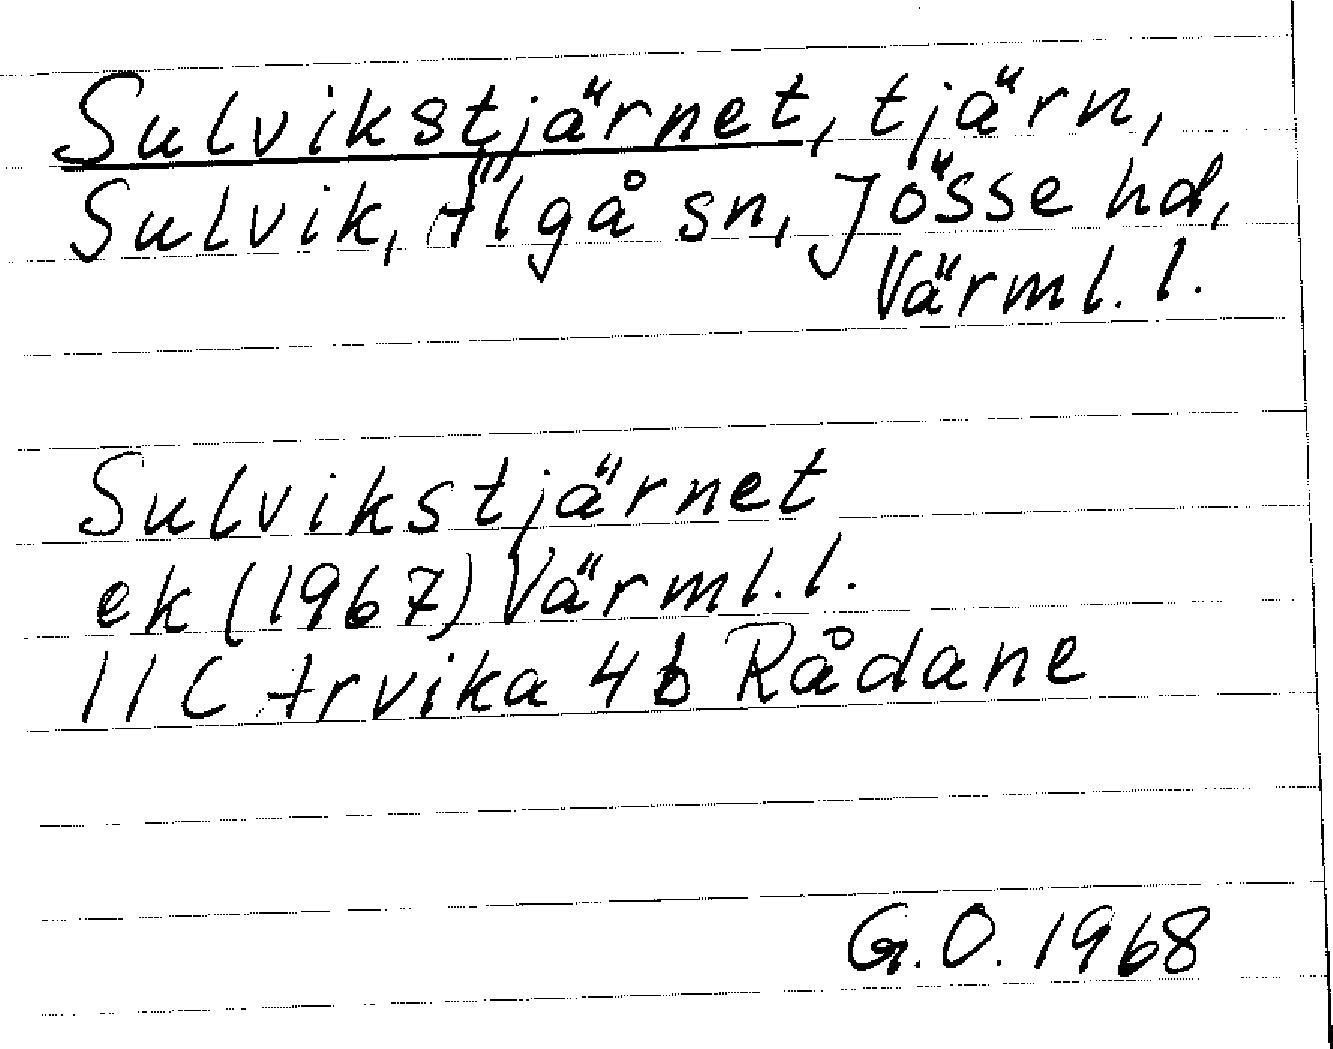 Sulvikstjärnet, tjärn,
Sulvik, Älgå sn, Jösse hd,
Värml. l.
Sulvikstjärnet
ek (1967) Värml. l.
11C Arvika 4b Rådane
G.O. 1968